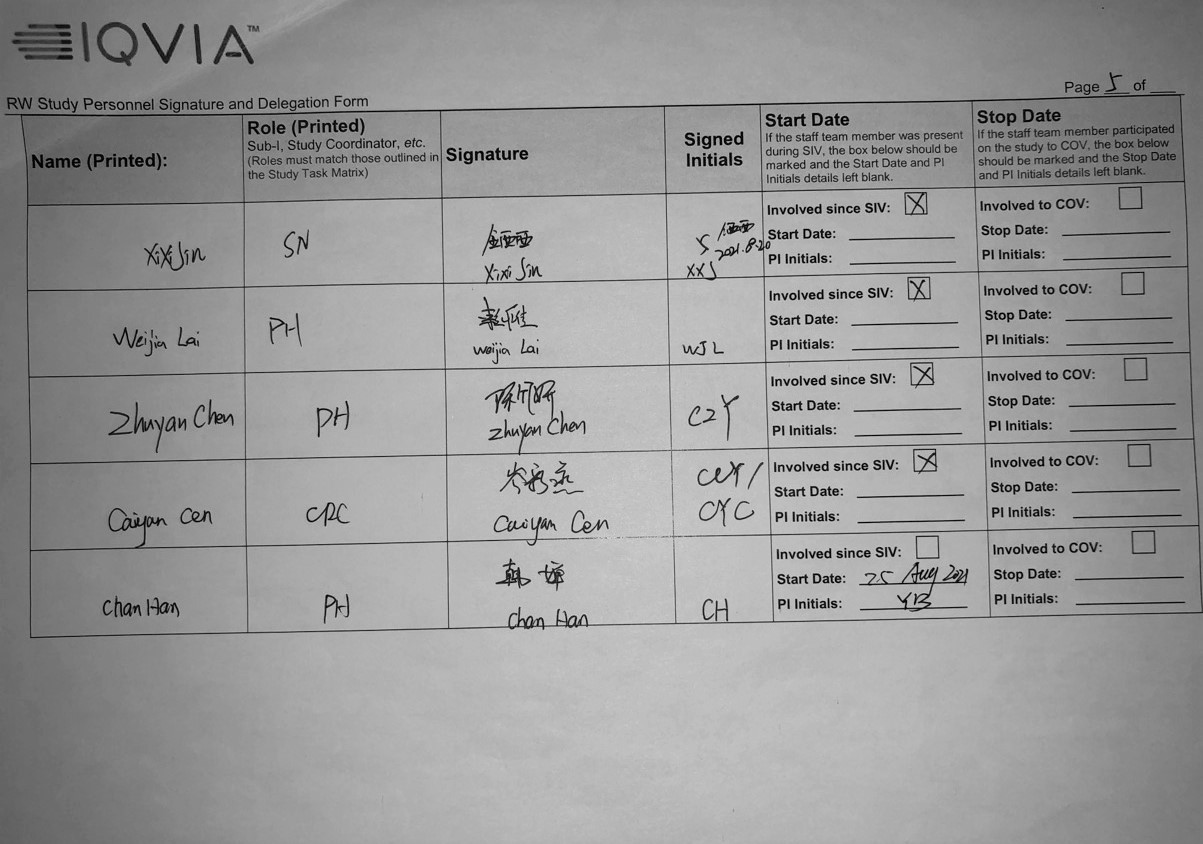 IQVIA™
Page 5 of
RW Study Personnel Signature and Delegation Form
Name (Printed):
Role (Printed)
Sub-I, Study Coordinator, etc.
(Roles must match those outlined in
the Study Task Matrix)
Signature
Signed
Initials
Start Date
If the staff team member was present
during SIV, the box below should be
marked and the Start Date and PI
Initials details left blank.
Stop Date
If the staff team member participated
on the study to COV, the box below
should be marked and the Stop Date
and PI Initials details left blank.
XiXi Jin
SN
金西西
Xixi Jin
2021.8.20
XXJ
Involved since SIV: X
Start Date:
PI Initials:
Involved to COV:
Stop Date:
PI Initials:
Weijia Lai
PH
weijia Lai
WJL
Involved since SIV: X
Start Date:
PI Initials:
Involved to COV:
Stop Date:
PI Initials:
Zhuyan Chen
PH
Zhuyan Chen
CZY
Involved since SIV: X
Start Date:
PI Initials:
Involved to COV:
Stop Date:
PI Initials:
Caiyan Cen
CRC
岑彩燕
Caiyan Cen
CYC
Involved since SIV: X
Start Date:
PI Initials:
Involved to COV:
Stop Date:
PI Initials:
Chan Han
PH
韩婵
Chan Han
CH
Involved since SIV:
Start Date: 25 Aug 2021
PI Initials: YB
Involved to COV:
Stop Date:
PI Initials: